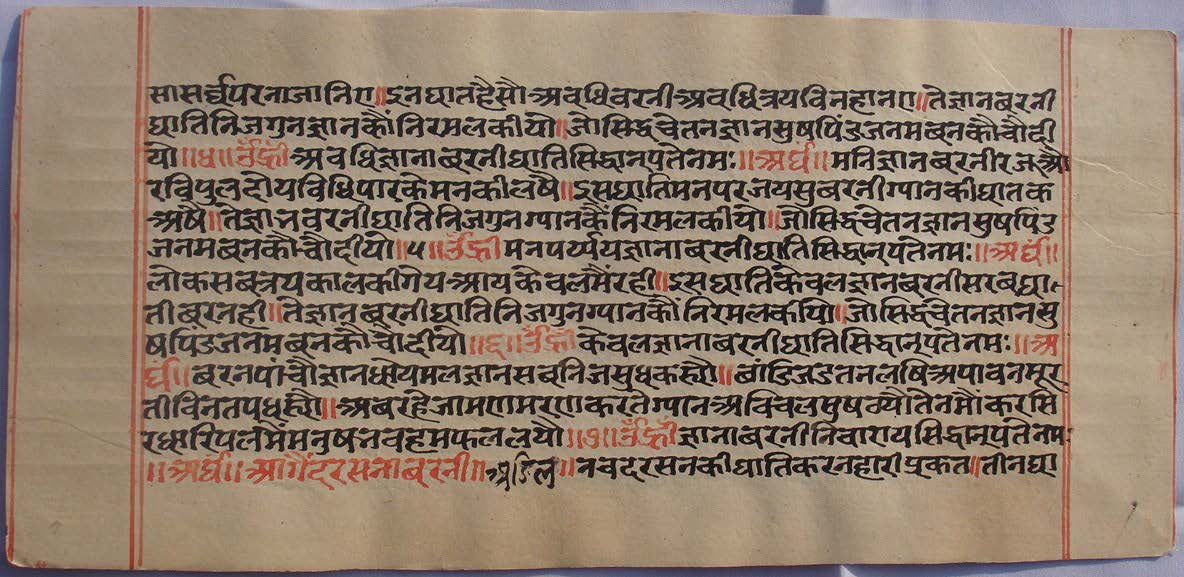 सासर्द्धपरनाजानिए॥इनघातहैसौअवधिवरनीअवधित्रयविनहानए॥तेज्ञानबरनी
घातिनिजगुनज्ञानकौंनिरमलकीयौ॥जोसिद्धचेतनज्ञानसुषपिंडजनमबनकौचौदी
यौ॥४॥ॐह्रींअवधिज्ञानाबरनीघातिसिद्धानपतेनमः॥अर्घ॥मनिज्ञानबरनीरजऔ
रविपुलदोयविधिपारकेमनकीलषै॥इसघातिमनपरजयसुबरनीग्पानकीघातक
अषै॥तेज्ञानवरनीघातिनिजगुनग्पानकौंनिरमलकीयौ॥जोसिद्धचेतनज्ञानसुषपिंड
जनमबनकौचौदीयौ॥५॥ॐह्रींमनपर्य्ययज्ञानाबरनीघातिसिद्धानपतेनमः॥अर्घ॥
लोकसबत्रयकालकीगेयआयकेवलमैंरही॥इसघातिकेवलज्ञानबरनीसरबघा
तीबरनही॥तेज्ञानबरनीघातिनिजगुनग्पानकौंनिरमलकीयौ॥जोसिद्धचेतनज्ञानसु
षपिंडजनमबनकौचौदीयौ॥६॥ॐह्रींकेवलज्ञानाबरनीघातिसिद्धानपतेनमः॥अ
र्घ॥बरनपांचौज्ञानधोयमलज्ञानसबनिजसुधकह्यौ॥षांडिजडतनलषिअपावनमूर
तीविनतपधह्यौ॥अबरहेजामणमरणकरतेग्पानअविचलसुषव्यौतेनमौकरसि
रधारिपलमैंमनुषनवहमफललयौ॥७॥ॐह्रींज्ञानाबरनीनिवारायसिद्धानपतेनमः
॥अर्घ॥आगैंदरसनाबरनी॥अडिल॥नवदरसनकीघातिकरनहारीप्रकत॥तीनघा